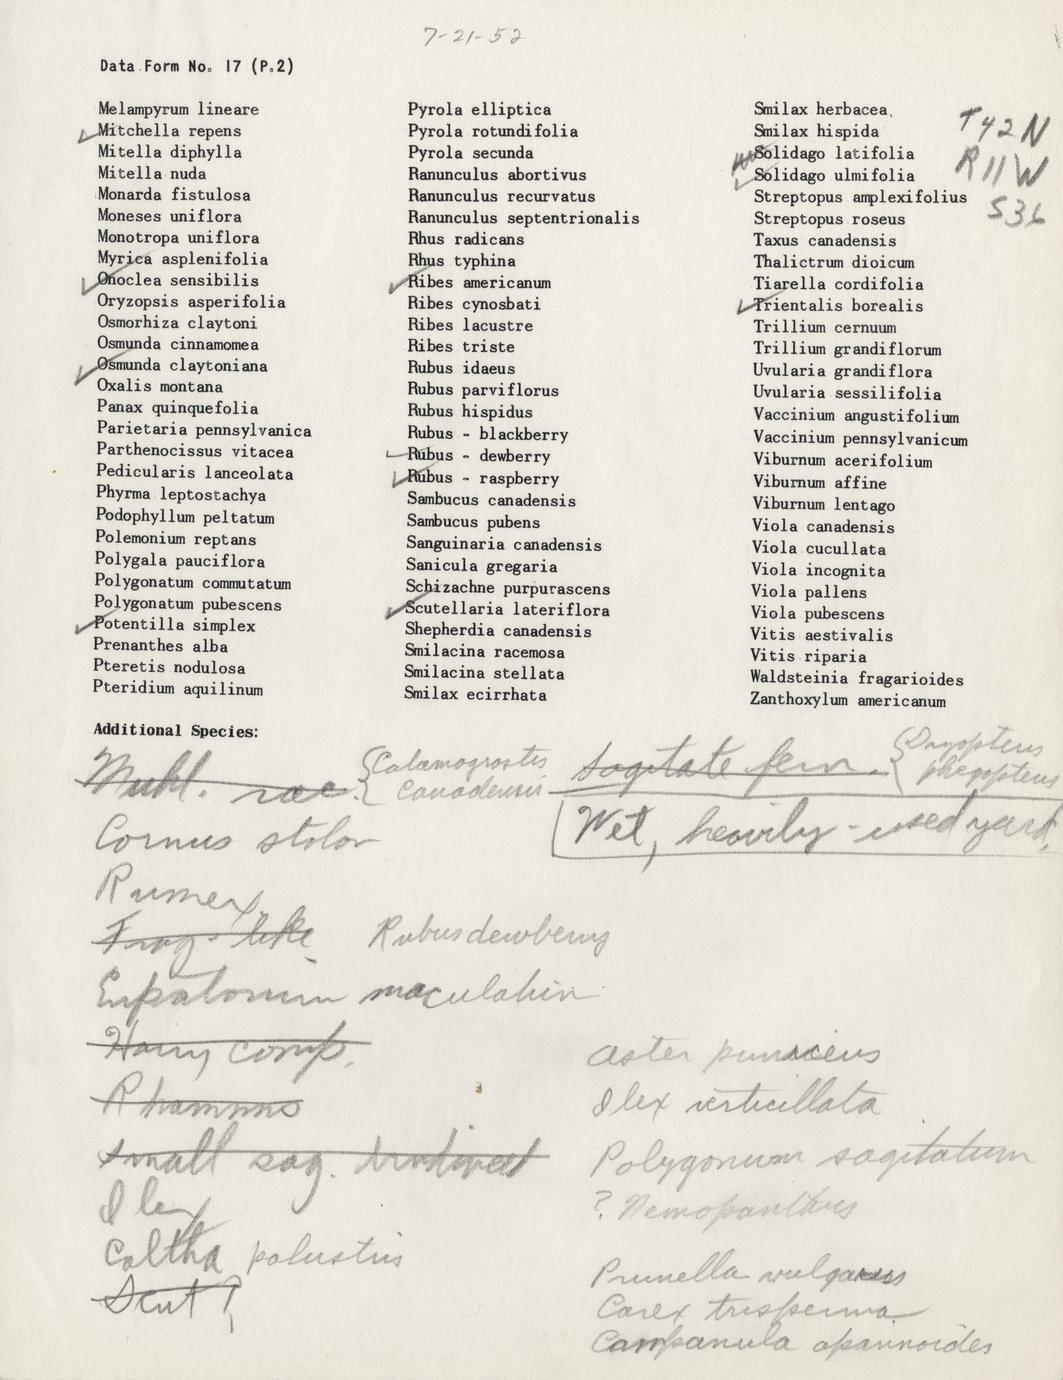 7-21-52
Data Form No. 17 (P.2)
Melampyrum lineare
Mitchella repens
Mitella diphylla
Mitella nuda
Monarda fistulosa
Moneses uniflora
Monotropa uniflora
Myrica asplenifolia
Onoclea sensibilis
Oryzopsis asperifolia
Osmorhiza claytoni
Osmunda cinnamomea
Osmunda claytoniana
Oxalis montana
Panax quinquefolia
Parietaria pennsylvanica
Parthenocissus vitacea
Pedicularis lanceolata
Phyrma leptostachya
Podophyllum peltatum
Polemonium reptans
Polygala pauciflora
Polygonatum commutatum
Polygonatum pubescens
Potentilla simplex
Prenanthes alba
Pteretis nodulosa
Pteridium aquilinum
Pyrola elliptica
Pyrola rotundifolia
Pyrola secunda
Ranunculus abortivus
Ranunculus recurvatus
Ranunculus septentrionalis
Rhus radicans
Rhus typhina
Ribes americanum
Ribes cynosbati
Ribes lacustre
Ribes triste
Rubus idaeus
Rubus parviflorus
Rubus hispidus
Rubus - blackberry
Rubus - dewberry
Rubus - raspberry
Sambucus canadensis
Sambucus pubens
Sanguinaria canadensis
Sanicula gregaria
Schizachne purpurascens
Scutellaria lateriflora
Shepherdia canadensis
Smilacina racemosa
Smilacina stellata
Smilax ecirrhata
Smilax herbacea
Smilax hispida
Solidago latifolia
Solidago ulmifolia
Streptopus amplexifolius
Streptopus roseus
Taxus canadensis
Thalictrum dioicum
Tiarella cordifolia
Trientalis borealis
Trillium cernuum
Trillium grandiflorum
Uvularia grandiflora
Uvularia sessilifolia
Vaccinium angustifolium
Vaccinium pennsylvanicum
Viburnum acerifolium
Viburnum affine
Viburnum lentago
Viola canadensis
Viola cucullata
Viola incognita
Viola pallens
Viola pubescens
Vitis aestivalis
Vitis riparia
Waldsteinia fragarioides
Zanthoxylum americanum
T42N
R11W
S36
Additional Species:
Muhl. rac. {Calamogrostis
Canadensis
Cornus stolon
Rumex
Frag-like Rubus dewberry
Eupatorium maculatum
Hairy comp.
Rhamnus
Small sag.
Ilex
Caltha palustris
Scut ?
Sagitate fern {Dryopteris
phegopteris
Wet, heavily-used yard.
Aster puniceus
Ilex verticillata
Polygonum sagitatum
? Nemopanthus
Prunella vulgaris
Carex trisperma
Campanula aparinoides